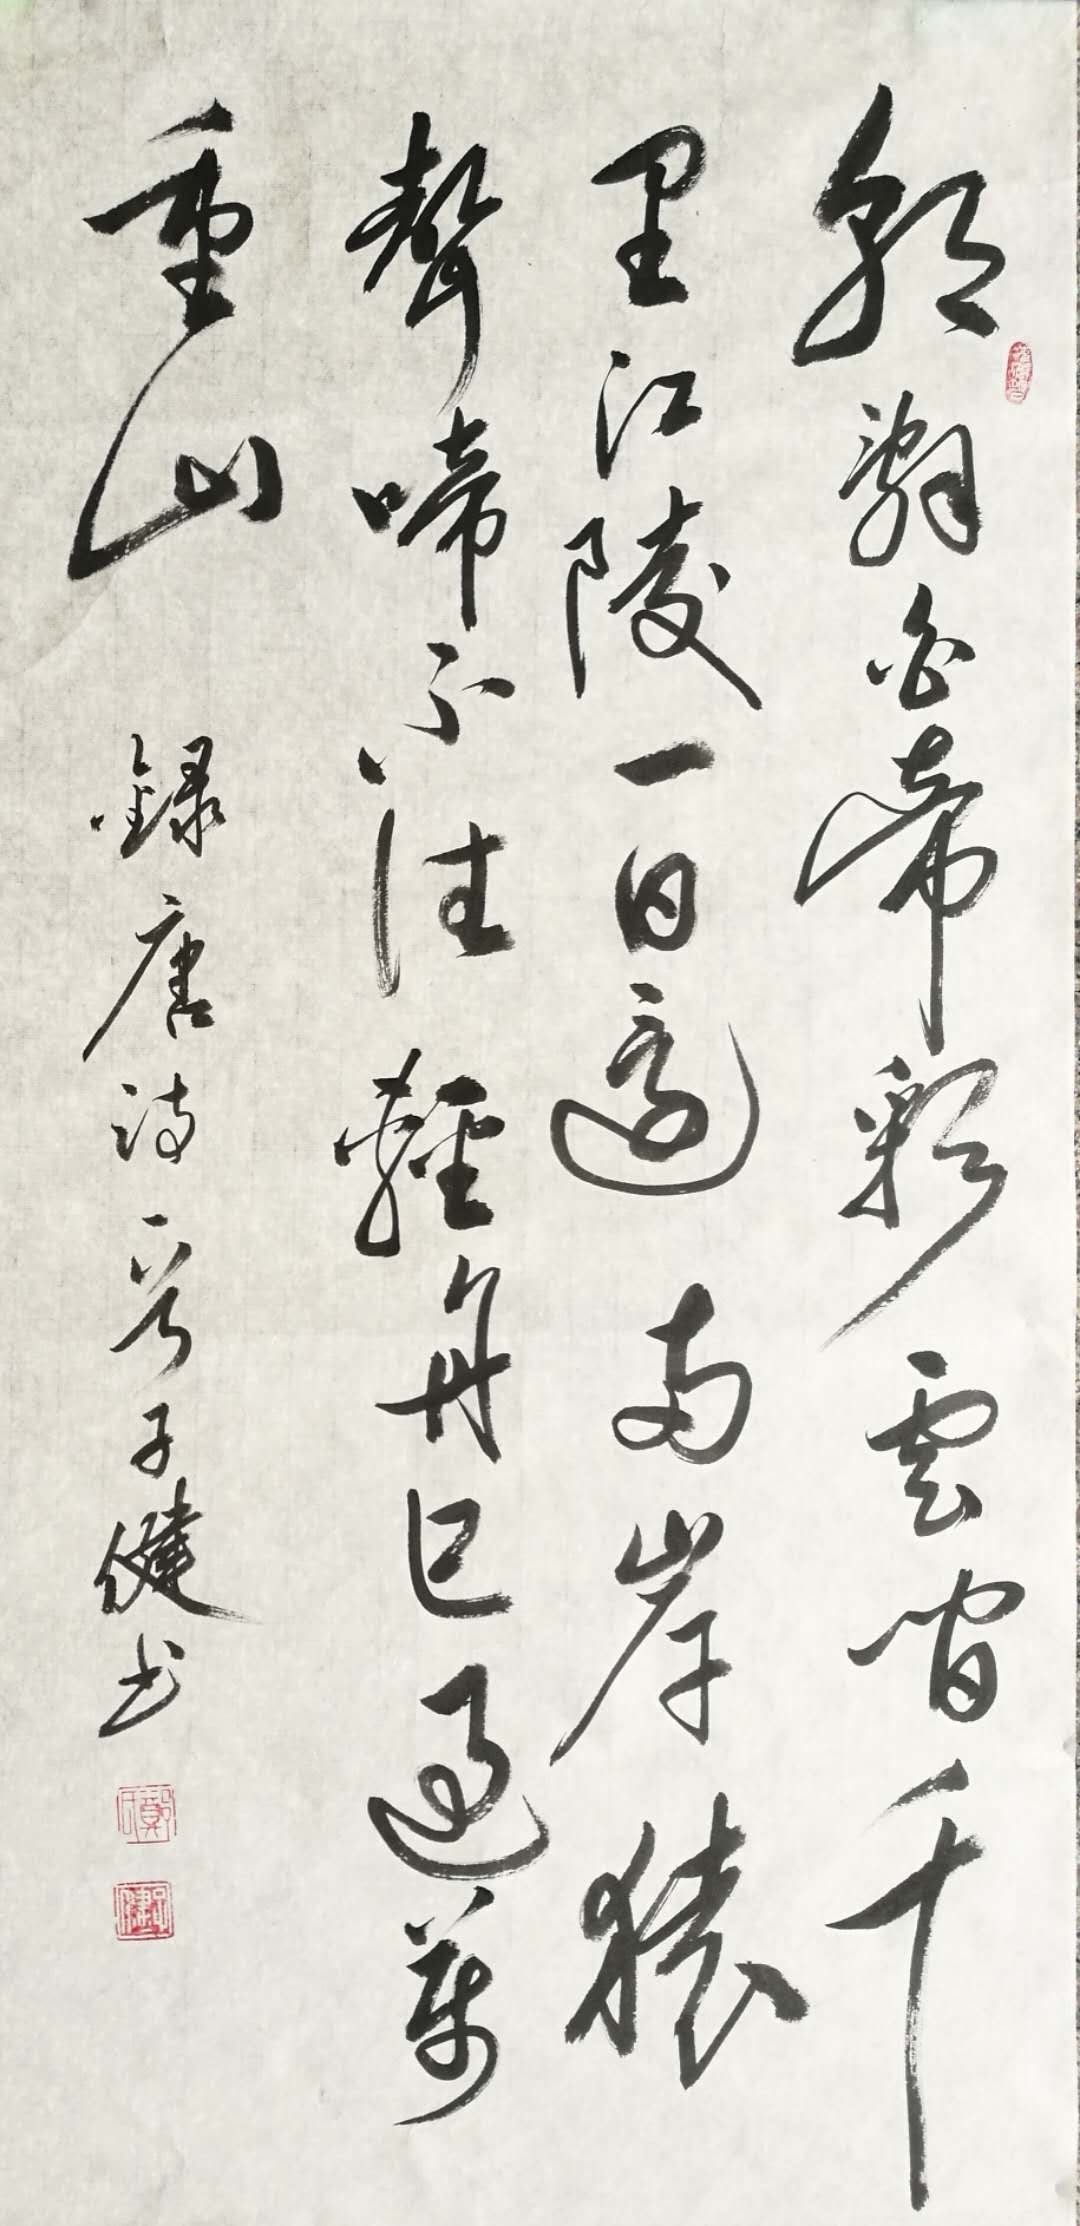 朝辭白帝彩雲間千
里江陵一日還兩岸猿
聲啼不住輕舟已過萬
重山
錄唐詩一首子健书
鄭氏
子健